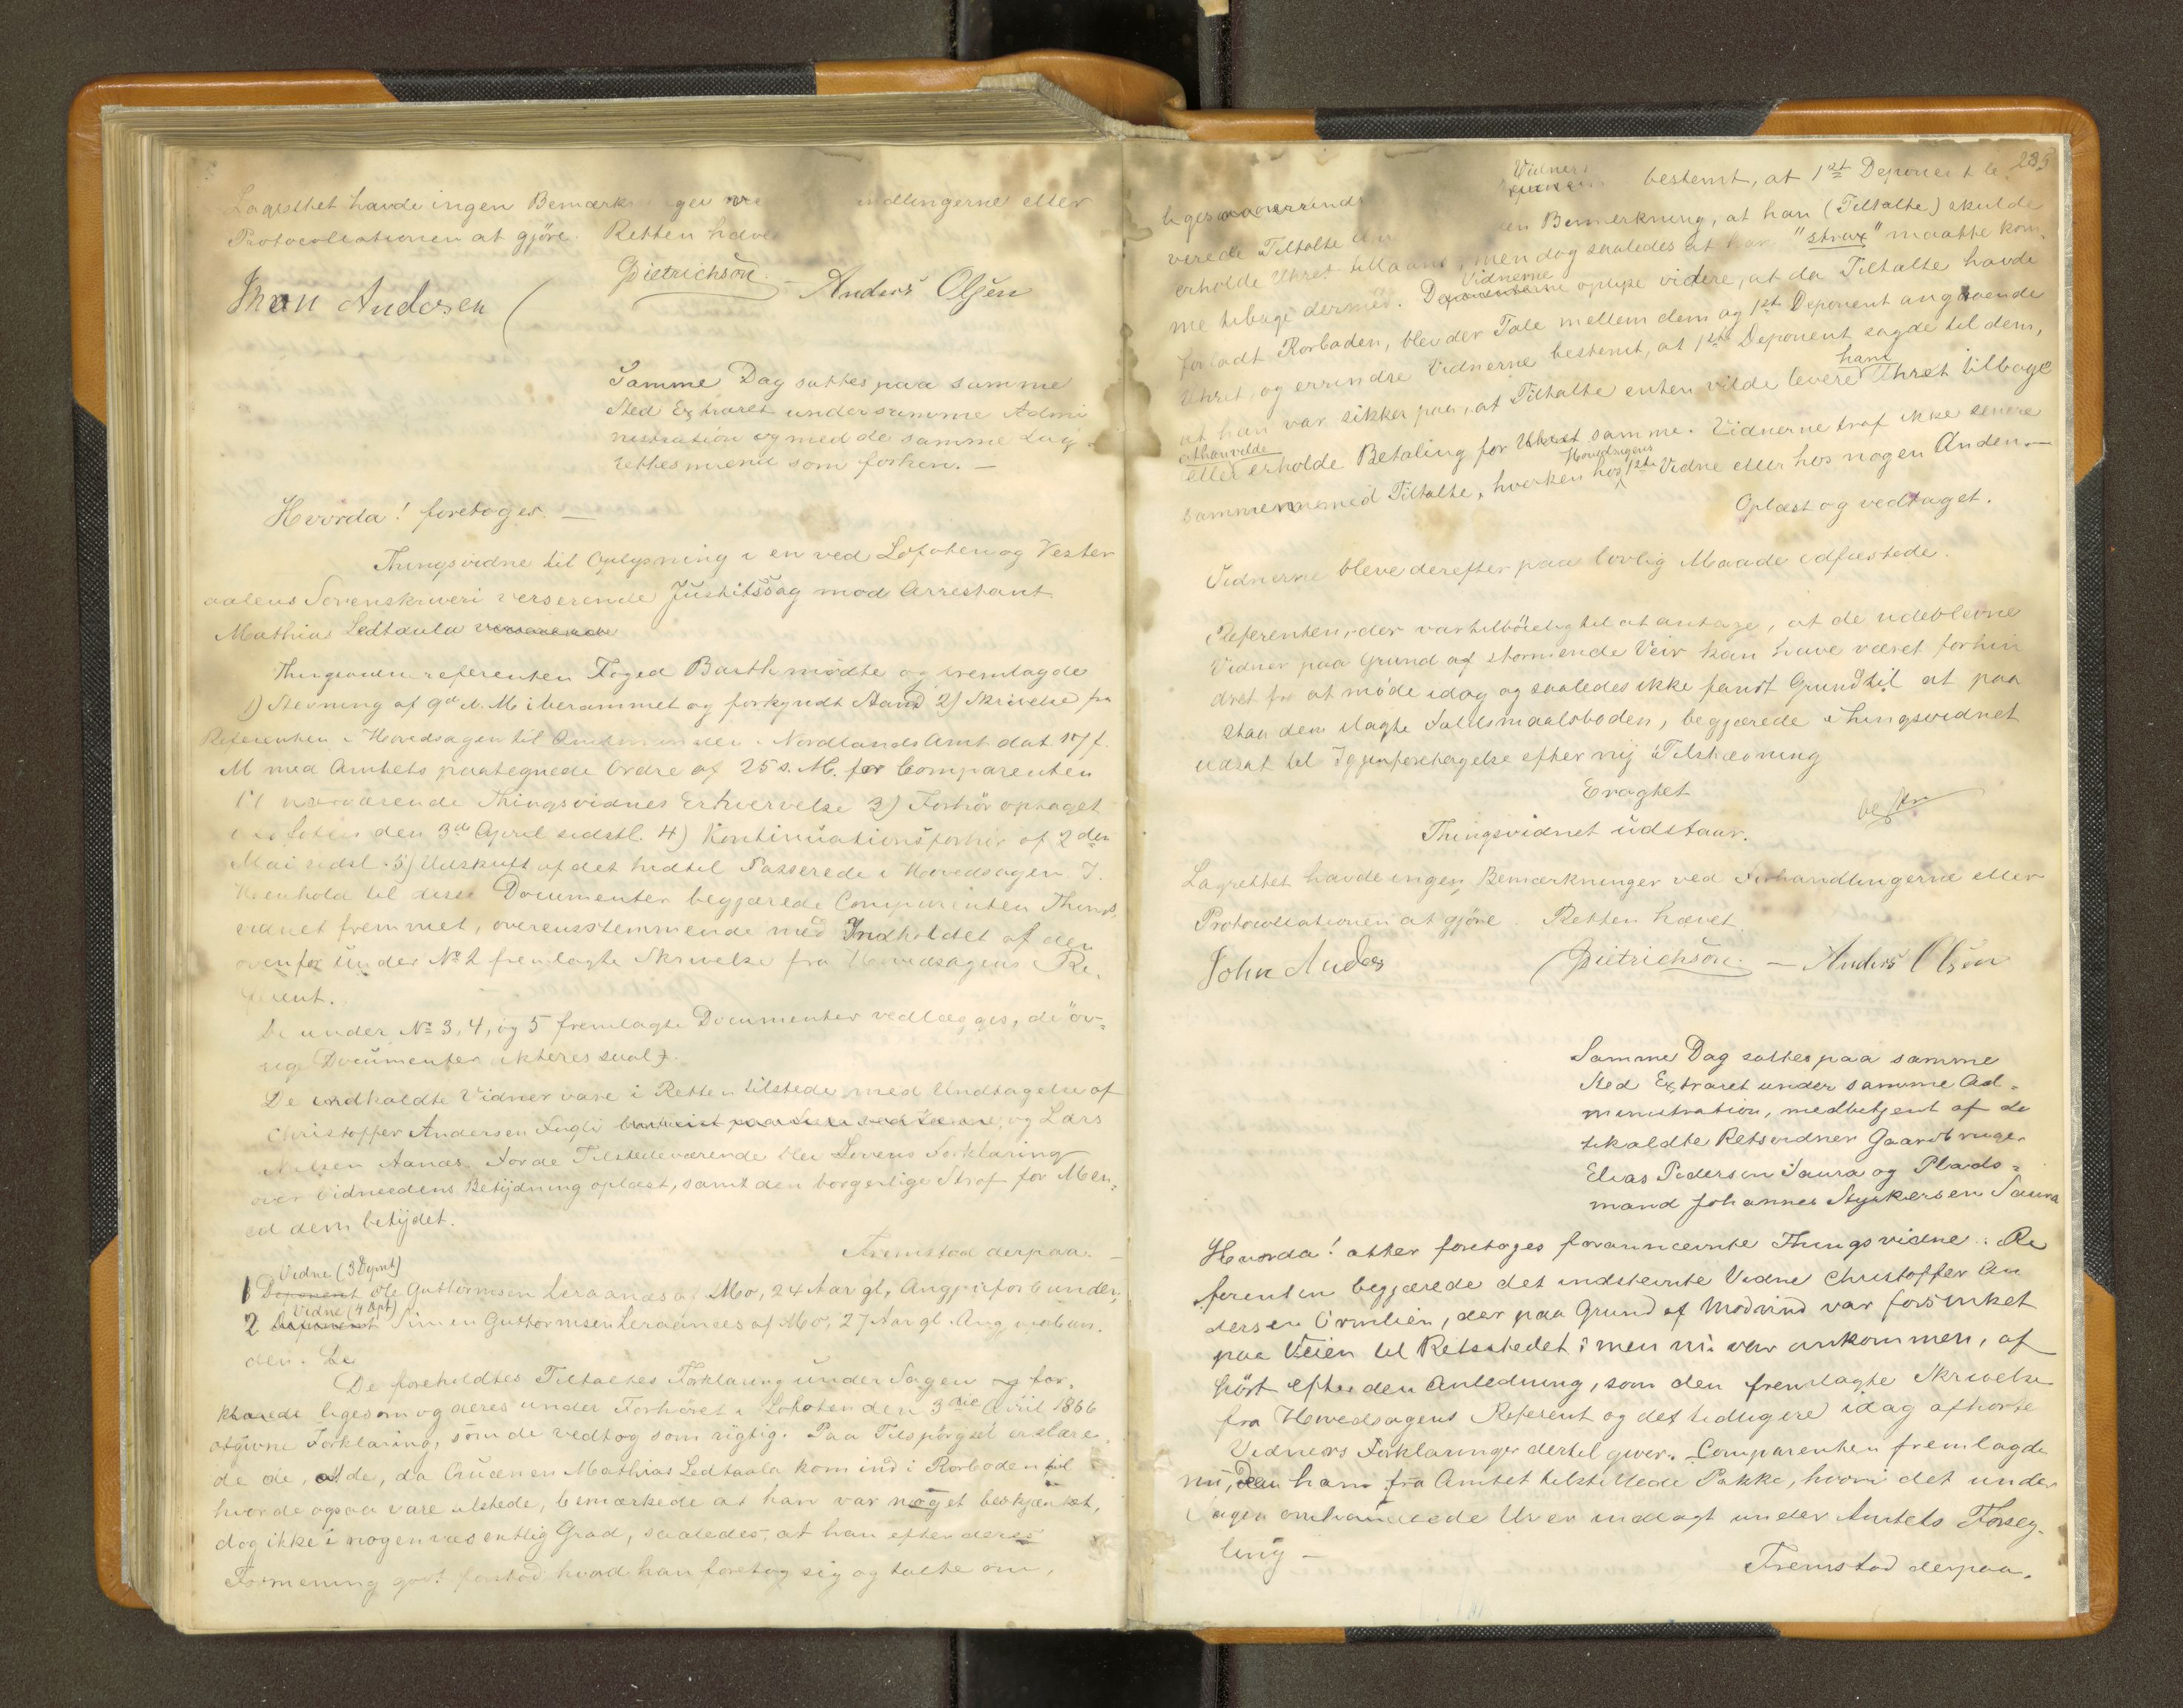 Lagrettet havde ingen Bemærkninger ved Forhandlingerne eller
Protocollationen at gjöre. Retten hævet
Dietrichson. – Anders Olsen
Jhon Andersen
Samme Dag sattes paa samme
Sted Extraret under samme Admi
nistration og med de samme Lag
rettesmænd som forhen. –
Hvorda! foretoges. –
Thingsvidne til Oplysning i en ved Lofoten og Vester
aalens Sorenskriveri verserende Justitssag mod Arrestant
Mathias Ledtaula
Thingsvidnereferenten Foged Barth mødte og fremlagde
1) Stevning af 9de d. M. i berammet og forkyndt Stand 2) Skrivelse fra
Referenten i Hovedsagen til Amtmanden i Nordlands Amt dat. 17 f.
M med Amtets paategnede Ordre af 25 s. M. for Comparenten
til nærværende Thingsvidnes Erhvervelse 3) Forhör optaget
i Lofoten den 3die April sidstl. 4) Kontinuationsforhör af 2den
Mai sidstl. 5) Udskrift af det hidtil Passerede i Hovedsagen. I
Henhold til disse Documenter begjærede Comparenten Things
vidnet fremmet, overensstemmende med Indholdet af den
ovenfor under No 2 fremlagte Skrivelse fra Hovedsagens Re,
ferent.
De under No 3, 4, og 5 fremlagte Documenter vedlægges, de öv-
rige Documenter akteres saal.
De indkaldte Vidner vare i Retten tilstede med Undtagelse af
Christoffer Andersen og Lars
Nilsen Aanæs. For de Tilstedeværende blev Lovens Forklaring
over Vidneedens Betÿdning oplæst, samt den borgerlige Straf for Men-
ed dem betÿdet.
Fremstod derpaa. –
Vidne (3 Dpnt)
1 Deponent Ole Guttormsen Leraanæs af Mo, 24 Aar gl, Angjer forbunden,
Vidne (4 Dpt)
2 Deponent Simen Guttormsen Leraanæs af Mo, 27 Aar gl. Ang,
den.
De foreholdtes Tiltaltes Forklaring under Sagen og for,
klarede ligesom og deres under Forhöret i Lofoten den 3die April 1866
afgivne Forklaring, som de vedtog som rigtig. Paa Tilspörgsel erklære,
de de, at de, da Quænen Mathias Ledtaala kom ind i Rorboden til
hvor de ogsaa vare tilstede, bemærkede at han var noget beskjænket,
dog ikke i nogen væsentlig Grad, saaledes, at han efter deres
Formening godt forstod hvad han foretog sig og talte om,
235
Vidners
bestemt, at 1st Deponent le
verede Tiltalte den Bemerkning, at han (Tiltalte) skulde
erholde Uhret tillaans, men dog saaledes at han "strax" maatte kom,
me tilbage dermed. Vidnerne oplyse videre, at da Tiltalte havde
forladt Rorboden, blev der Tale mellem dem og 1st Deponent angaaende
Uhret, og erindre Vidnerne bestemt, at 1ste Deponent sagde til dem,
at han var sikker paa, at Tiltalte enten vilde levere ham Uhret tilbage
at han vilde
eller erholde Betaling for Uhret samme. Vidnerne traf ikke senere
sammen med Tiltalte, hverken hos Hovedsagens 1ste Vidne eller hos nogen Anden. –
Oplæst og vedtaget.
Vidnerne bleve derefter paa lovlig Maade edfæstede.
Referenten, der var tilböielig til at antage, at de udeblevne
Vidner paa Grund af stormende Veir kan have været forhin
dret fra at møde idag og saaledes ikke fandt Grund til at paa
staa dem ilagte Faldsmaalsboden, begjærede Thingsvidnet
udsat til Igjenforetagelse efter nÿ Tilstævning
Eragtet
Thingsvidnet udstaar.
Lagrettet havde ingen Bemærkninger ved Forhandlingerne eller
Protocollationen at gjöre. Retten hævet.
John Anders Dietrichson. – Anders Olsen
Samme Dag sattes paa samme
Sted Extraret under samme Ad-
ministration, medbetjent af de
tilkaldte Retsvidner Gaardbruger
Elias Pedersen Saura og Plads-
mand Johannes Styrkersen Saura
Hvorda! atter foretoges forannævnte Thingsvidne. Re
ferenten begjærede det indstevnte Vidne Christoffer An
dersen Ormlien, der paa Grund af Modvind var forsinket
paa Veien til Retsstedet, men nu var ankommen, af
hört efter den Anledning, som den fremlagte Skrivelse
fra Hovedsagens Referent og det tidligere idag afhørte
Vidners Forklaringer dertil giver. Comparenten fremlagde
nu, den ham fra Amtet tilstillede Pakke, hvori det under
Sagen omhandlede Ur er indlagt under Amtets Forseg,
ling –
Fremstod derpaa.